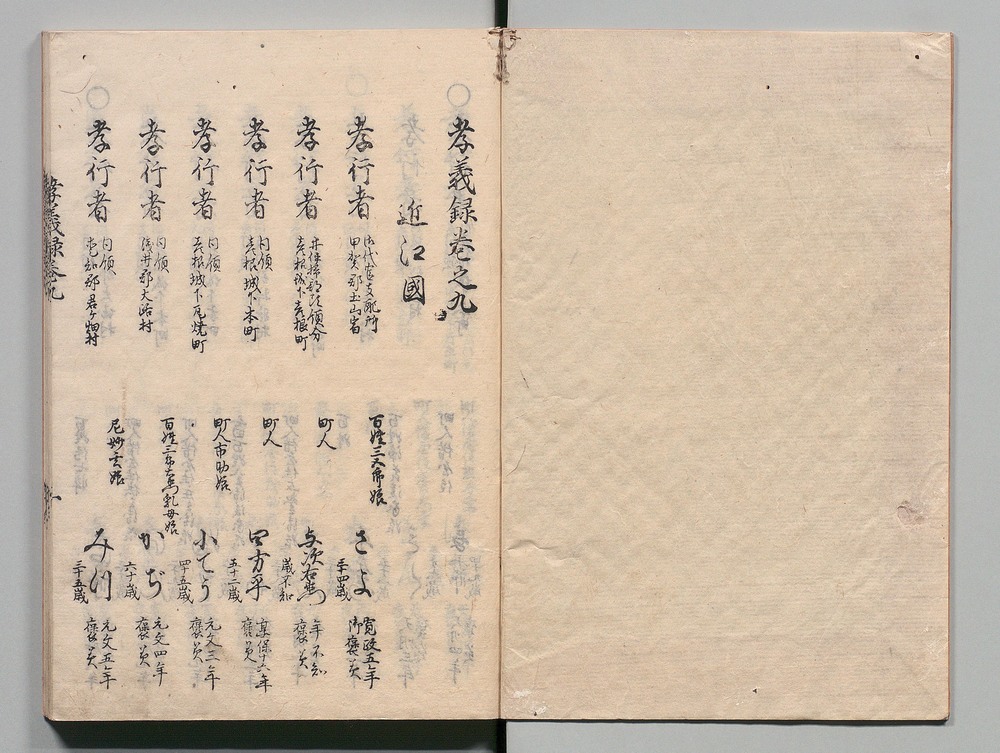 孝義録巻之九
近江國
孝行者
御代官支配所
甲賀郡土山宿
百姓三文郎娘
さよ
三十四歳
寛政五年
御褒美
孝行者
井伊掃部頭領分
彦根城下彦根町
町人
与次右衛門
歳不知
年不知
褒美
孝行者
同領
彦根城下本町
町人
四方平
五十二歳
享保十六年
褒美
孝行者
同領
彦根城下瓦焼町
町人市助娘
小てう
四十五歳
元文三年
褒美
孝行者
同領
浅井郡大路村
百姓三右衛門乳母娘
かぢ
六十歳
元文四年
褒美
孝行者
同領
愛知郡君ヶ畑村
尼妙玄娘
みつ
三十五歳
元文五年
褒美
孝義録巻九
一